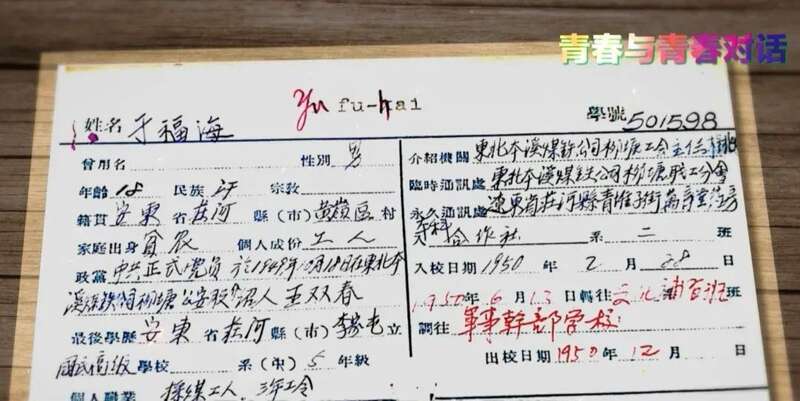 青春与青春对话
Yu fu-hai
姓名 于福海 學號 501598
曾用名 性別 男
年齡 18 民族 汗 宗教
籍貫 安東 省 莊河 縣(市) 黃嶺區 村
家庭出身 貧农 個人成份 工人
政黨 中共正式党员 於1949年 月18日在東北本
溪煤鉄公司柳塘 公安 介绍人 王双春
最後學歷 安東 省 莊河 縣(市) 李 屯 立
國民高級 學校 系(中) 5 年級
個人職業 採煤工人 三年工令
介紹機關 東北本溪煤鉄公司柳塘工会主任
臨時通訊處 東北本溪煤鉄公司柳塘职工分會
永久通訊處 遼東省莊河縣青堆子街萬 堂 房
入 本科 合作社 系 二 班
入校日期 1950 年 2 月 28 日
1950 年 6 月 13 日轉往 文化補習班 班
調往 軍事幹部學校
出校日期 1950 年 12 月 日